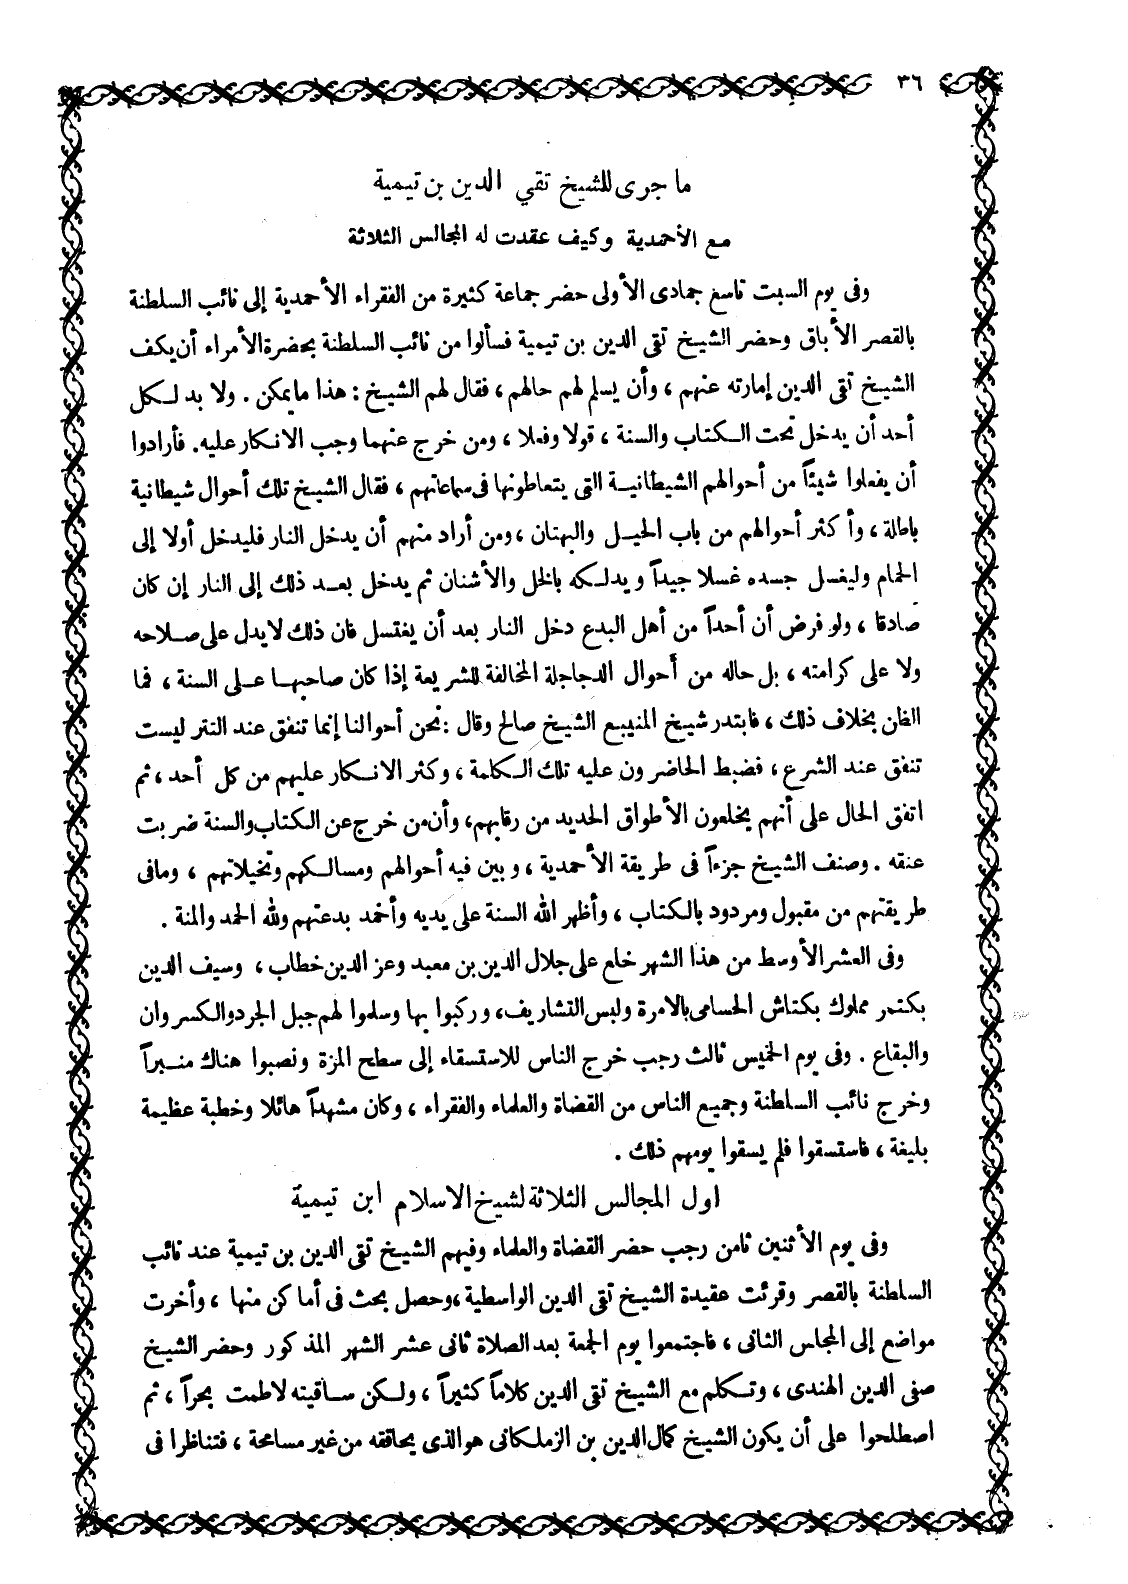 ٣٦
ما جرى للشيخ تقي الدين بن تيمية
مع الأحمدية وكيف عقدت له المجالس الثلاثة
وفى يوم السبت تاسع جمادى الأولى حضر جماعة كثيرة من الفقراء الأحمدية إلى نائب السلطنة
بالقصر الأبلق وحضر الشيخ تقى الدين بن تيمية فسألوا من نائب السلطنة بحضرة الأمراء أن يكف
الشيخ تقى الدين إمارته عنهم ، وأن يسلم لهم حالهم ، فقال لهم الشيخ : هذا ما يمكن . ولا بد لكل
أحد أن يدخل تحت الكتاب والسنة ، قولا وفعلا ، ومن خرج عنهما وجب الانكار عليه . فأرادوا
أن يفعلوا شيئاً من أحوالهم الشيطانية التى يتعاطونها فى سماعاتهم ، فقال الشيخ تلك أحوال شيطانية
باطلة ، وأكثر أحوالهم من باب الحيل والبهتان ، ومن أراد منهم أن يدخل النار فليدخل أولا إلى
الحمام وليغسل جسده غسلا جيداً ويدلكه بالخل والأشنان ثم يدخل بعد ذلك إلى النار إن كان
صادقا ، ولو فرض أن أحداً من أهل البدع دخل النار بعد أن يغتسل فان ذلك لا يدل على صلاحه
ولا على كرامته ، بل حاله من أحوال الدجاجلة المخالفة للشريعة إذا كان صاحبها على السنة ، فما
الظن بخلاف ذلك ، فابتدر شيخ المنيبع الشيخ صالح وقال : نحن أحوالنا إنما تنفق عند التتر ليست
تنفق عند الشرع ، فضبط الحاضرون عليه تلك الكلمة ، وكثر الانكار عليهم من كل أحد ، ثم
اتفق الحال على أنهم يخلعون الأطواق الحديد من رقابهم، وأن من خرج عن الكتاب والسنة ضربت
عنقه . وصنف الشيخ جزءاً فى طريقة الأحمدية ، وبين فيه أحوالهم ومسالكهم وتخيلاتهم ، ومافى
طريقتهم من مقبول ومردود بالكتاب ، وأظهر الله السنة على يديه وأخمد بدعتهم ولله الحمد والمنة .
وفى العشر الأوسط من هذا الشهر خلع على جلال الدين بن معبد وعز الدين خطاب ، وسيف الدين
بكتمر مملوك بكتاش الحسامى بالامرة ولبس التشاريف، وركبوا بها وسلموا لهم جبل الجرد والكسروان
والبقاع . وفى يوم الخميس ثالث رجب خرج الناس للاستسقاء إلى سطح المزة ونصبوا هناك منبراً
وخرج نائب السلطنة وجميع الناس من القضاة والعلماء والفقراء ، وكان مشهداً هائلا وخطبة عظيمة
بليغة ، فاستسقوا فلم يسقوا يومهم ذلك .
اول المجالس الثلاثة لشيخ الاسلام ابن تيمية
وفى يوم الأثنين ثامن رجب حضر القضاة والعلماء وفيهم الشيخ تقى الدين بن تيمية عند نائب
السلطنة بالقصر وقرئت عقيدة الشيخ تقى الدين الواسطية ،وحصل بحث فى أماكن منها ، وأخرت
مواضع إلى المجلس الثانى ، فاجتمعوا يوم الجمعة بعد الصلاة ثانى عشر الشهر المذكور وحضر الشيخ
صفى الدين الهندى ، وتكلم مع الشيخ تقى الدين كلاماً كثيراً ، ولكن ساقيته لاطمت بحراً ، ثم
اصطلحوا على أن يكون الشيخ كمال الدين بن الزملكانى هو الذى يحاققه من غير مسامحة ، فتناظرا فى